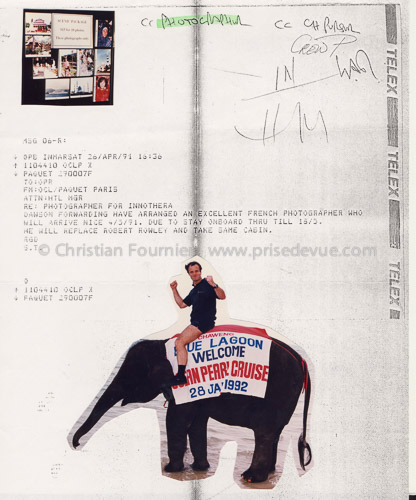 cc PHOTOGRAPHER
cc CH PURSER
IN
TELEX
TELEX
TELEX
MSG 06-R:
OPR INMARSAT 26/APR/91 16:36
1104410 OCLP X
PAQUET 290007F
TO:OPR
FM:OCL/PAQUET PARIS
ATTN:HTL MGR
RE: PHOTOGRAPHER FOR INNOTHERA
DAWSON FORWARDING HAVE ARRANGED AN EXCELLENT FRENCH PHOTOGRAPHER WHO
WILL ARRIVE NICE 4/5/91. DUE TO STAY ONBOARD THRU TILL 16/5.
WE WILL REPLACE ROBERT ROWLEY AND TAKE SAME CABIN.
RGD
© Christian Fournier www.prisedevue.com
1104410 OCLP X
PAQUET 290007F
CHAWENG
BLUE LAGOON
WELCOME
PERRY CRUISE
28 JA' 1992